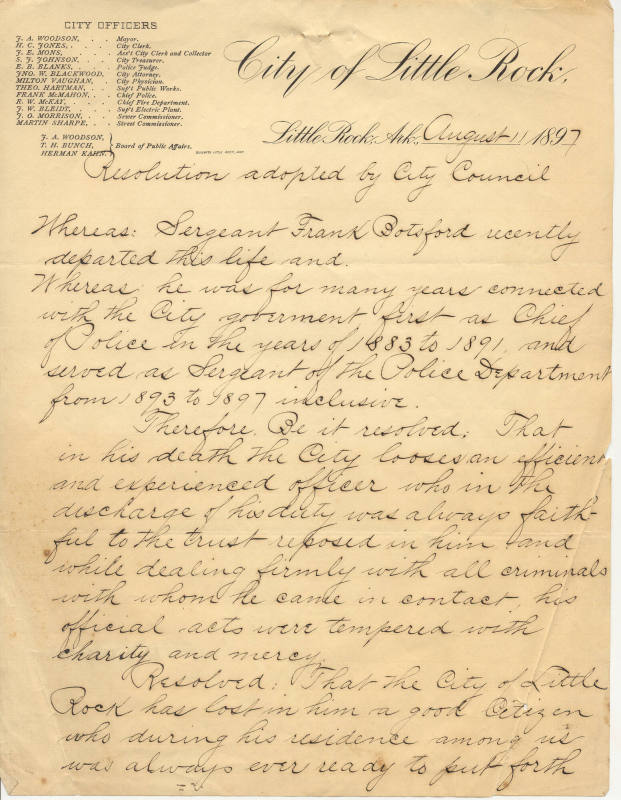 CITY OFFICERS
J. A. WOODSON, . . . Mayor.
H. C. JONES, . . . . City Clerk.
J. E. MONS, . . . . Ass't City Clerk and Collector
S. J. JOHNSON, . . . City Treasurer.
E. B. BLANKS, . . . . Police Judge.
JNO. W. BLACKWOOD, . City Attorney.
MILTON VAUGHAN, . . City Physician.
THEO. HARTMAN, . . . Sup't Public Works.
FRANK McMAHON, . . Chief Police.
R. W. McKAY, . . . . Chief Fire Department.
J. W. BLEIDT, . . . . Sup't Electric Plant.
J. O. MORRISON, . . . Sewer Commissioner.
MARTIN SHARPE, . . . Street Commissioner.
J. A. WOODSON,
T. H. BUNCH,
HERMAN KAHN.
Board of Public Affairs.
City of Little Rock.
Little Rock, Ark., August 11 1897
Resolution adopted by City Council
Whereas: Sergeant Frank Botsford recently
departed this life and.
Whereas he was for many years connected
with the City goverment first as Chief
of Police in the years of 1883 to 1891, and
served as Sergeant of the Police Department
from 1893 to 1897 inclusive.
Therefore. Be it resolved; That
in his death the City looses an efficient
and experienced officer who in the
discharge of his duty was always faith-
ful to the trust reposed in him and
while dealing firmly with all criminals
with whom he came in contact, his
official acts were tempered with
charity and mercy.
Resolved; That the City of Little
Rock has lost in him a good Citizen
who during his residence among us
was always ever ready to put forth